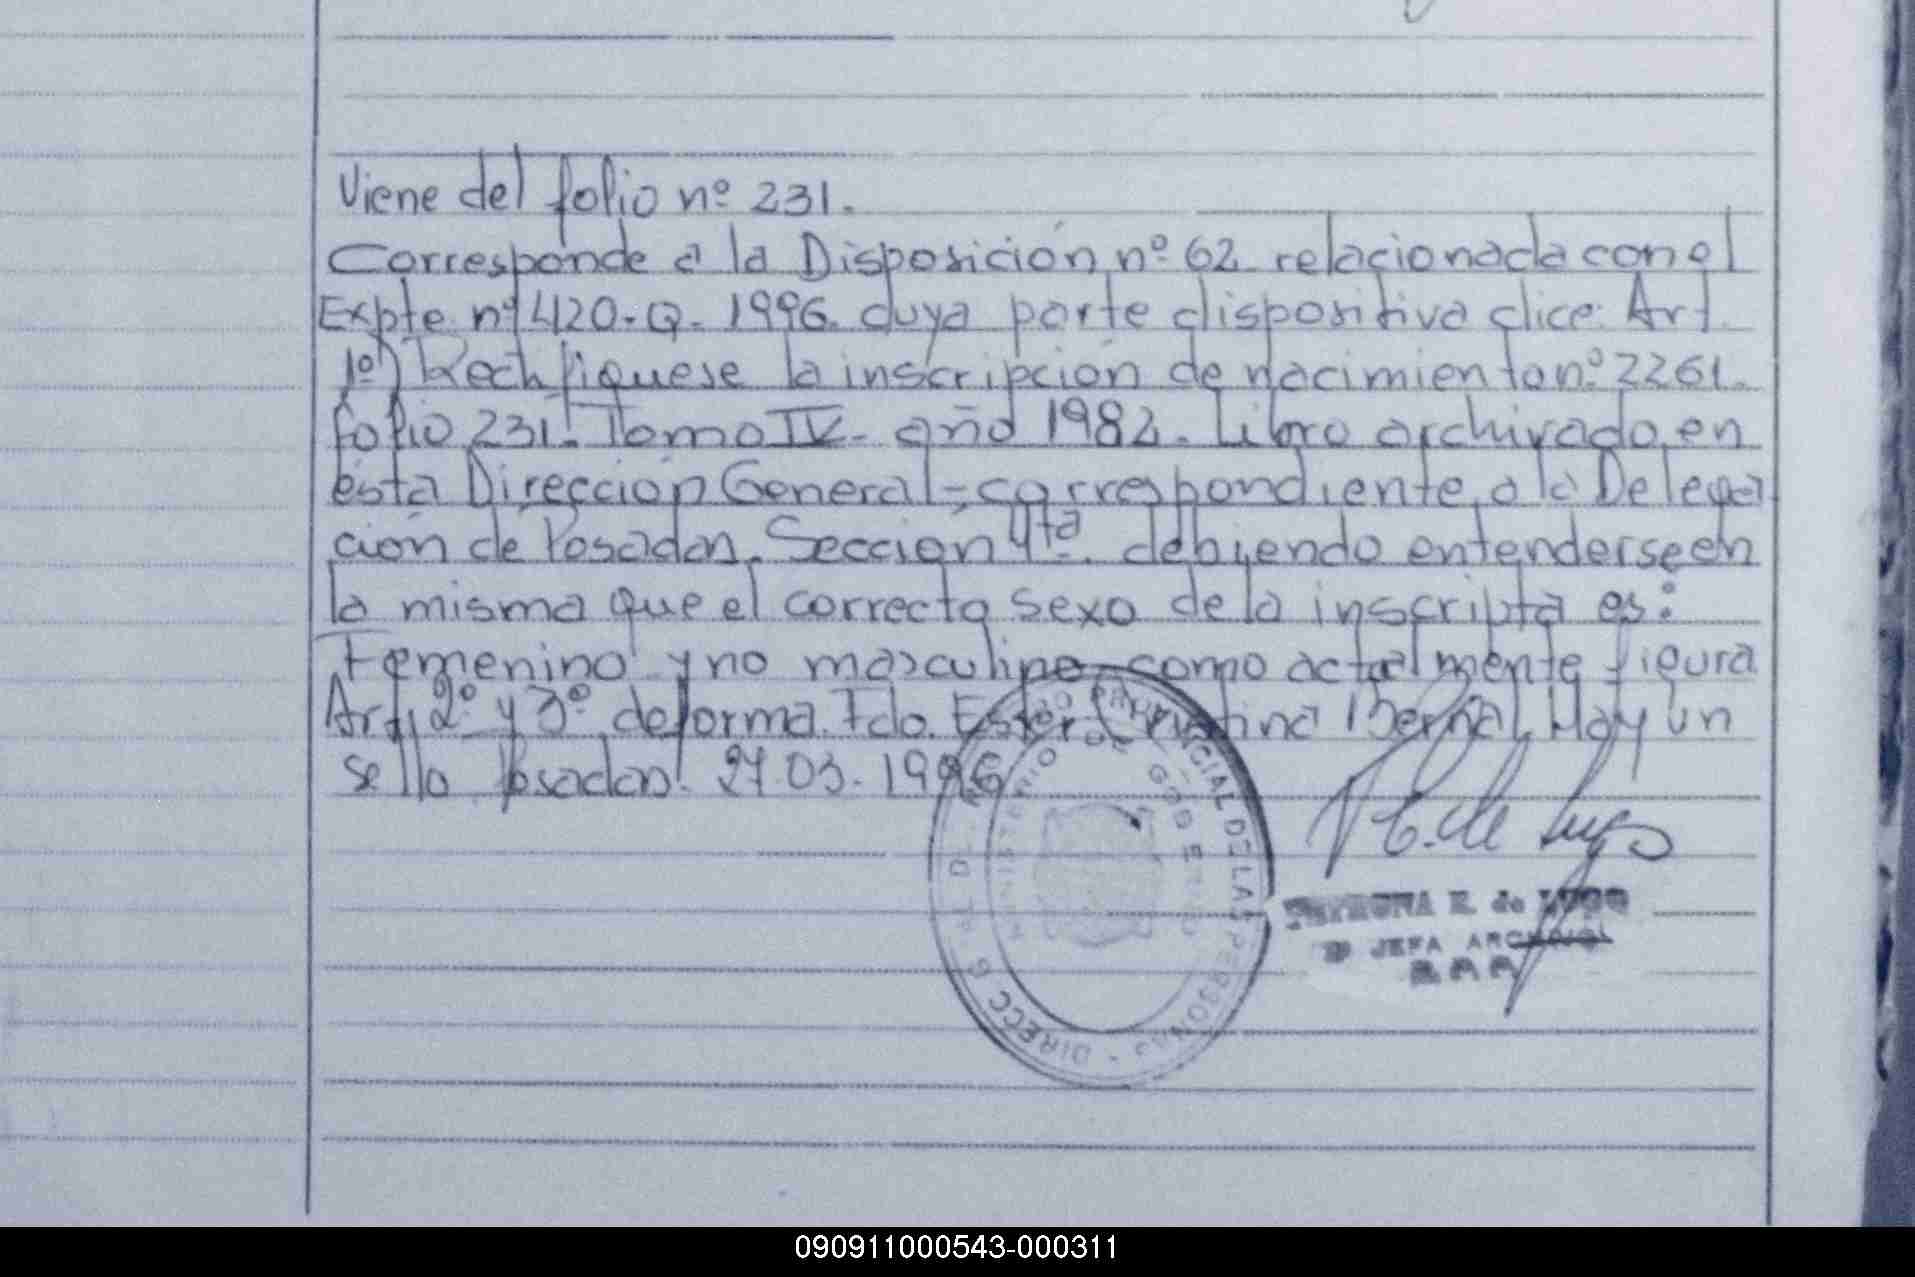 Viene del folio nº 231.
Corresponde a la Disposición nº 62 relacionada con el
Expte. nº 420-Q-1996. cuya parte dispositiva dice: Art.
1º) Rectifiquese la inscripción de nacimiento nº 2261.
folio 231. Tomo IV- año 1982. Libro archivado en
ésta Dirección General - correspondiente a la Delega
ción de Posadas. Sección 4ta. debiendo entenderse en
la misma que el correcto sexo de la inscripta es:
Femenino y no masculino como actualmente figura
Art. 2º y 3º de forma. Fdo. Ester Cristina Bernal. Hay un
sello Posadas. 27.03.1996
DIRECC PROVINCIAL DE LAS PERSONAS -
MINISTERIO DE GOBIERNO
P E. de Lugo
E. de LUGO
JEFA ARCHIVO
090911000543-000311